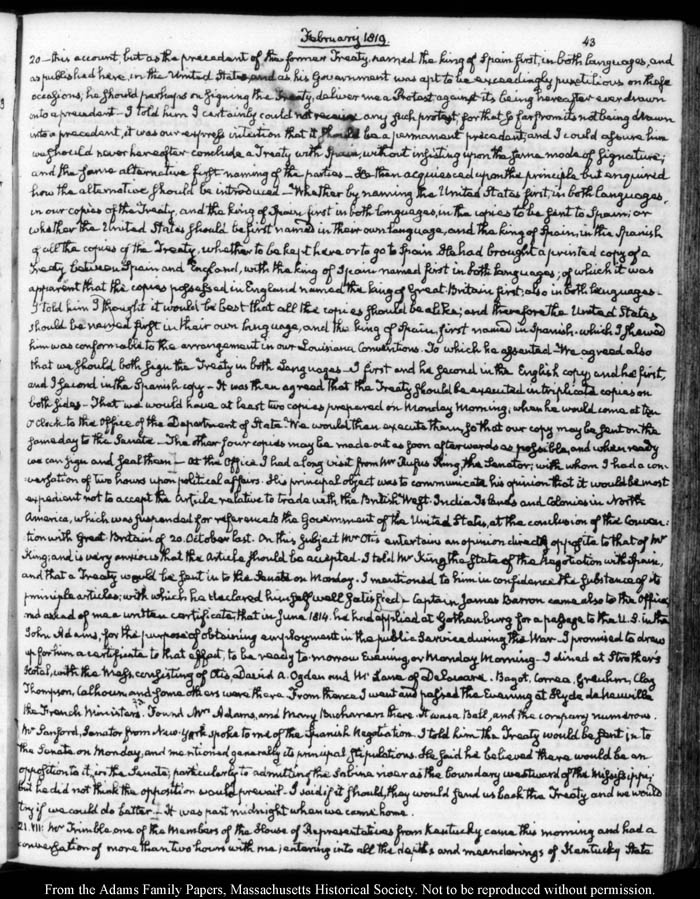 February 1819.
43
20 - this account, but as the precedent of the former Treaty, named the king of Spain first, in both languages, and
as published here, in the United States, and as his Government was apt to be exceedingly punctilious on these
occasions, he should perhaps on signing the Treaty, deliver me a Protest against its being hereafter ever drawn
into a precedent - I told him I certainly could not receive any such protest, for that so far from its not being drawn
into a precedent, it was our express intention that it should be a permanent precedent, and I could assure him
we should never hereafter conclude a Treaty with Spain, without insisting upon the same mode of signature;
and the same alternative first naming of the parties - He then acquiesced upon the principle but enquired
how the alternative should be introduced - Whether by naming the United States first, in both languages,
in our copies of the Treaty, and the king of Spain first in both languages, in the copies to be sent to Spain; or
whether the United States should be first named in their own language, and the king of Spain, in the Spanish
of all the copies of the Treaty, whether to be kept here or to go to Spain. He had brought a printed copy of a
Treaty between Spain and England, with the king of Spain named first in both languages; of which it was
apparent that the copies possessed in England named the king of Great Britain first; also in both languages -
I told him I thought it would be best that all the copies should be alike; and therefore the United States
should be named first in their own language, and the king of Spain, first named in Spanish - which I shewed
him was conformable to the arrangement in our Louisiana Conventions. To which he assented - We agreed also
that we should both sign the Treaty in both Languages - I first and he second in the English copy and he first,
and I second in the Spanish copy - It was then agreed that the Treaty should be executed in triplicate copies on
both sides - That we would have at least two copies prepared on Monday Morning; when he would come at ten
O'Clock to the Office of the Department of State. We would then execute them, so that our copy may be sent on the
same day to the Senate - The other four copies may be made out as soon afterwards as possible, and when ready
we can sign and seal them - At the Office I had a long visit from Mr Rufus King the Senator; with whom I had a con-
versation of two hours upon political affairs. His principal object was to communicate his opinion that it would be most
expedient not to accept the Article relative to trade with the British West-India Islands and Colonies in North
America, which was suspended for reference to the Government of the United States, at the conclusion of the Conven-
tion with Great Britain of 20. October last. On this subject Mr Otis entertains an opinion directly opposite to that of Mr
King; and is very anxious that the Article should be accepted. I told Mr King the State of the Negotiation with Spain,
and that a Treaty would be sent in to the Senate on Monday. I mentioned to him in confidence the substance of its
principle articles; with which he declared himself well satisfied - Captain James Barron came also to the Office,
and asked of me a written certificate, that in June 1814. he had applied at Gothenburg for a passage to the U.S. in the
John Adams, for the purpose of obtaining employment in the public Service during the War - I promised to draw
up for him a certificate to that effect, to be ready to-morrow Evening, or Monday Morning - I dined at Strother's
Hotel, with the Mess, consisting of Otis, David A. Ogden and Mc Lane of Delaware. Bagot, Correa, Greuhm, Clay
Thompson, Calhoun, and some others were there. From thence I went and passed the Evening at Hyde de Neuville
the French Ministers. Found Mrs Adams, and Mary Buchanan there. It was a Ball, and the company numerous.
Mr Sanford, Senator from New-York spoke to me of the Spanish Negotiation. I told him the Treaty would be sent in to
the Senate on Monday, and mentioned generally its principal stipulations. He said he believed there would be an
opposition to it, in the Senate; particularly to admitting the Sabine river as the boundary westward of the Mississippi;
but he did not think the opposition would prevail. I said if it should, they would send us back the Treaty and we would
try if we could do better - It was past midnight when we came home.
21. VII: Mr Trimble one of the Members of the House of Representatives from Kentucky came this morning and had a
conversation of more than two hours with me; entering into all the depths and meanderings of Kentucky State
From the Adams Family Papers, Massachusetts Historical Society. Not to be reproduced without permission.